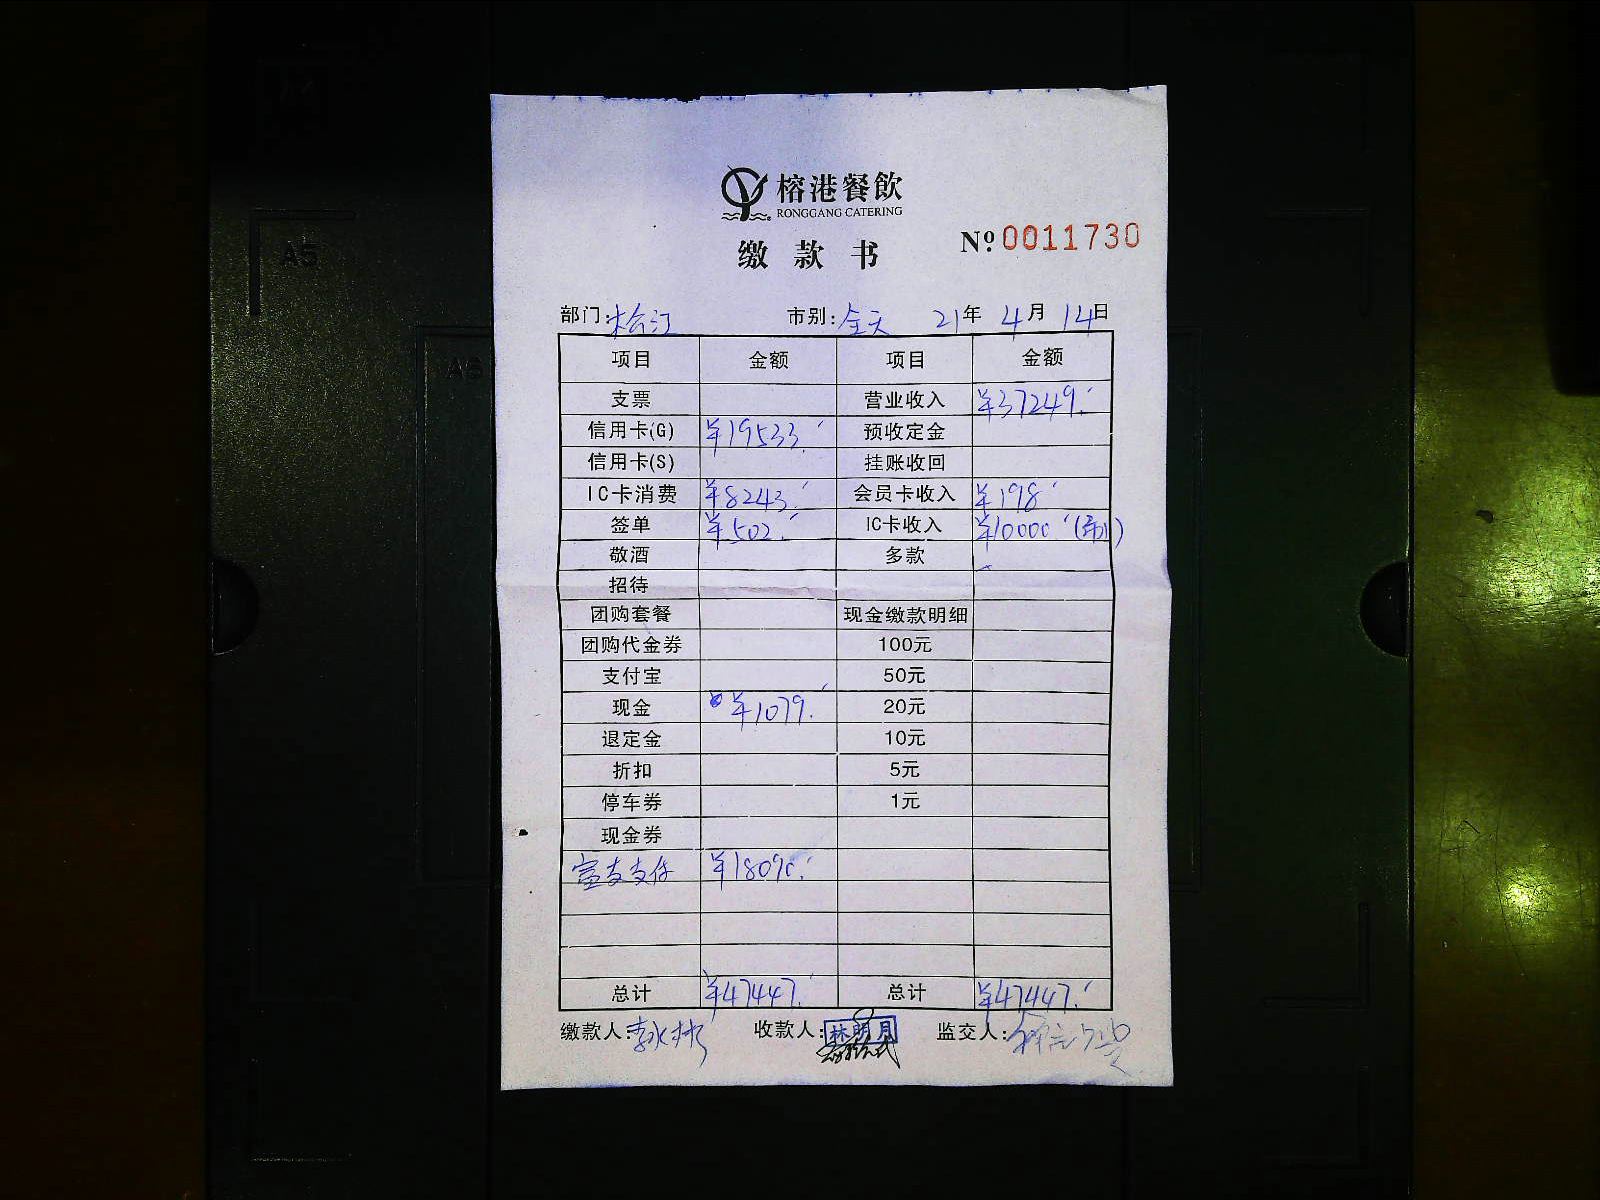 榕港餐飲
RONGGANG CATERING
缴款书
№ 0011730
部门: 市别:全天 21年 4月 14日
项目 金额 项目 金额
支票 营业收入 ¥37249.
信用卡(G) ¥19533. 预收定金
信用卡(S) 挂账收回
IC卡消费 ¥8243. 会员卡收入 ¥198
签单 ¥502. IC卡收入 ¥10000
敬酒 多款
招待
团购套餐 现金缴款明细
团购代金券 100元
支付宝 50元
现金 ¥1079. 20元
退定金 10元
折扣 5元
停车券 1元
现金券
富友支付 ¥18090.
总计 ¥47447. 总计 ¥47447.
缴款人: 收款人:林明月 监交人:
A5
A6